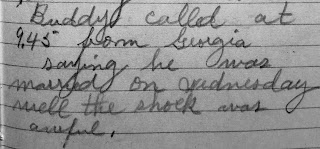 Buddy called at
9.45 from Georgia
saying he was
married on Wednesday
well the shock was
awful.